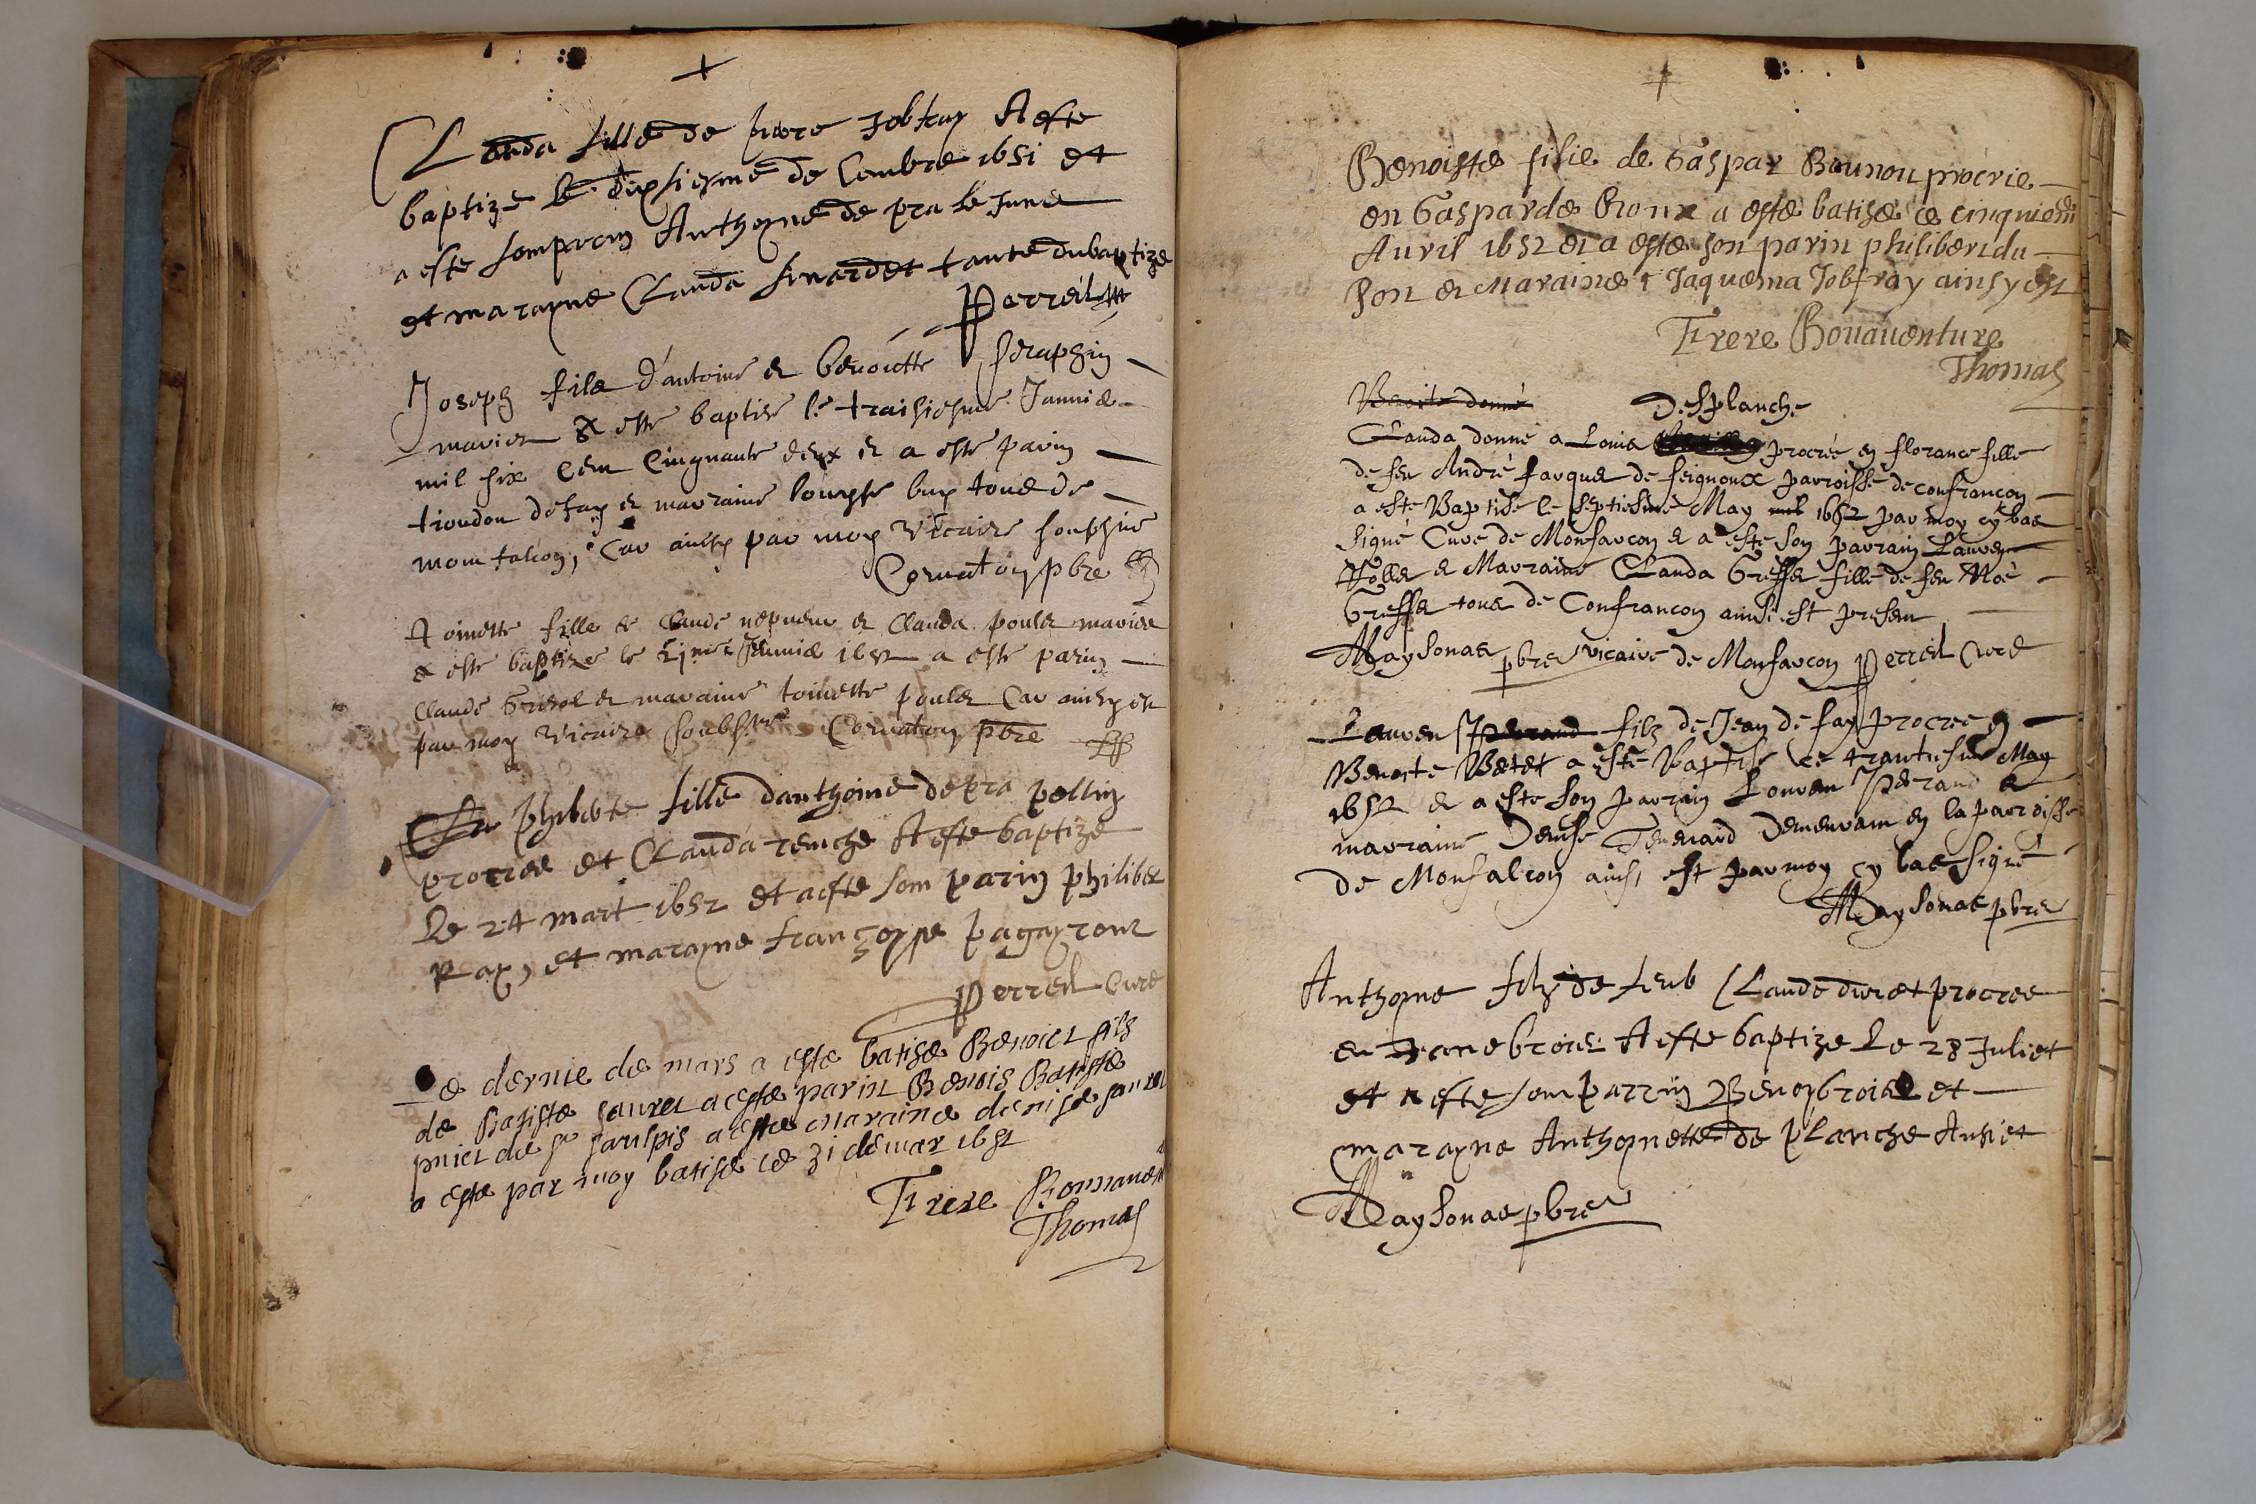 +
Clauda fille de piere Jobfray A este
baptize le dixsiesme de Cembre 1651 et
a este somparin Anthoyne de pra le June
et marayne Clauda sinardet tante du baptize
Perreil
Joseph filz d'antoine et benoictte seraphin
mariez A este baptise le traisiesme Janvie
mil six cens cinquante deux et a este parin
tiondou defay et marraine louyse buy tous de
montfalcon, Car ainsy par moy Vicaire soubsine
Cornaton pbre
Toinette fille de Claude nepueu et Clauda poulet mariez
a este baptize le Janvie 1652 a este parin
Claude et maraine toinette poulet Car ainsy est
par moy Vicaire soubs Cornaton pbre
philibte fille danthoine depra pollin
procree et Clauda renche A este baptize
Le 24 mart 1652 et aeste som parin philiber
Ray, et marayne françoyse pagayrour
Perreil Cure
Le dernie de mars a este batise Benoict fils
de Batiste sauret a este parin Benois Batiste
pniet de st saulpis a este maraine denise sauret
a este par moy batise ce 31 de mar 1652
Frere Bonnaven
Thomas
+
Benoiste filie de Gaspar Bounou procrie
en Gasparde Broux a este batise ce cinquiem
Auril 1652 et a este son parin philibert du
Pont et Maraine Jaquema Jobfray ainsy est
Frere Bonauenture
Thomas
Benoite donné Desplanche
Clauda donné a Louis procrée en florance fille
de feu André farques de feignoux parroisse de confrancon
a este Baptise le septiesme May mil 1652 par moy cy bas
signé Curé de Monfarcon et a este son parrain Lauren
Nollet et Marraine Clauda Greffet fille de feu Noé
Greffet tous de Confrancon ainsi est presens
Maysonas pbre vicaire de Monfarcon Perreil Cure
Lauren Perrand filz de Jean de fay procree en
Benoite Betet a este Baptise le trantiesme May
1652 et a este son parrain Louren Perrand et
marraine Denise Themard demeurans en la parroisse
de Monfalcon ainsi est par moy cy bas signé
Maysonas pbre
Anthoyne filz de feub Claude duret procree
en Jane broiet A este baptize Le 28 Juliet
et a este som parrin Benoy broiat et
marayne Anthoynette de planche Ansiet
Maysonas pbre